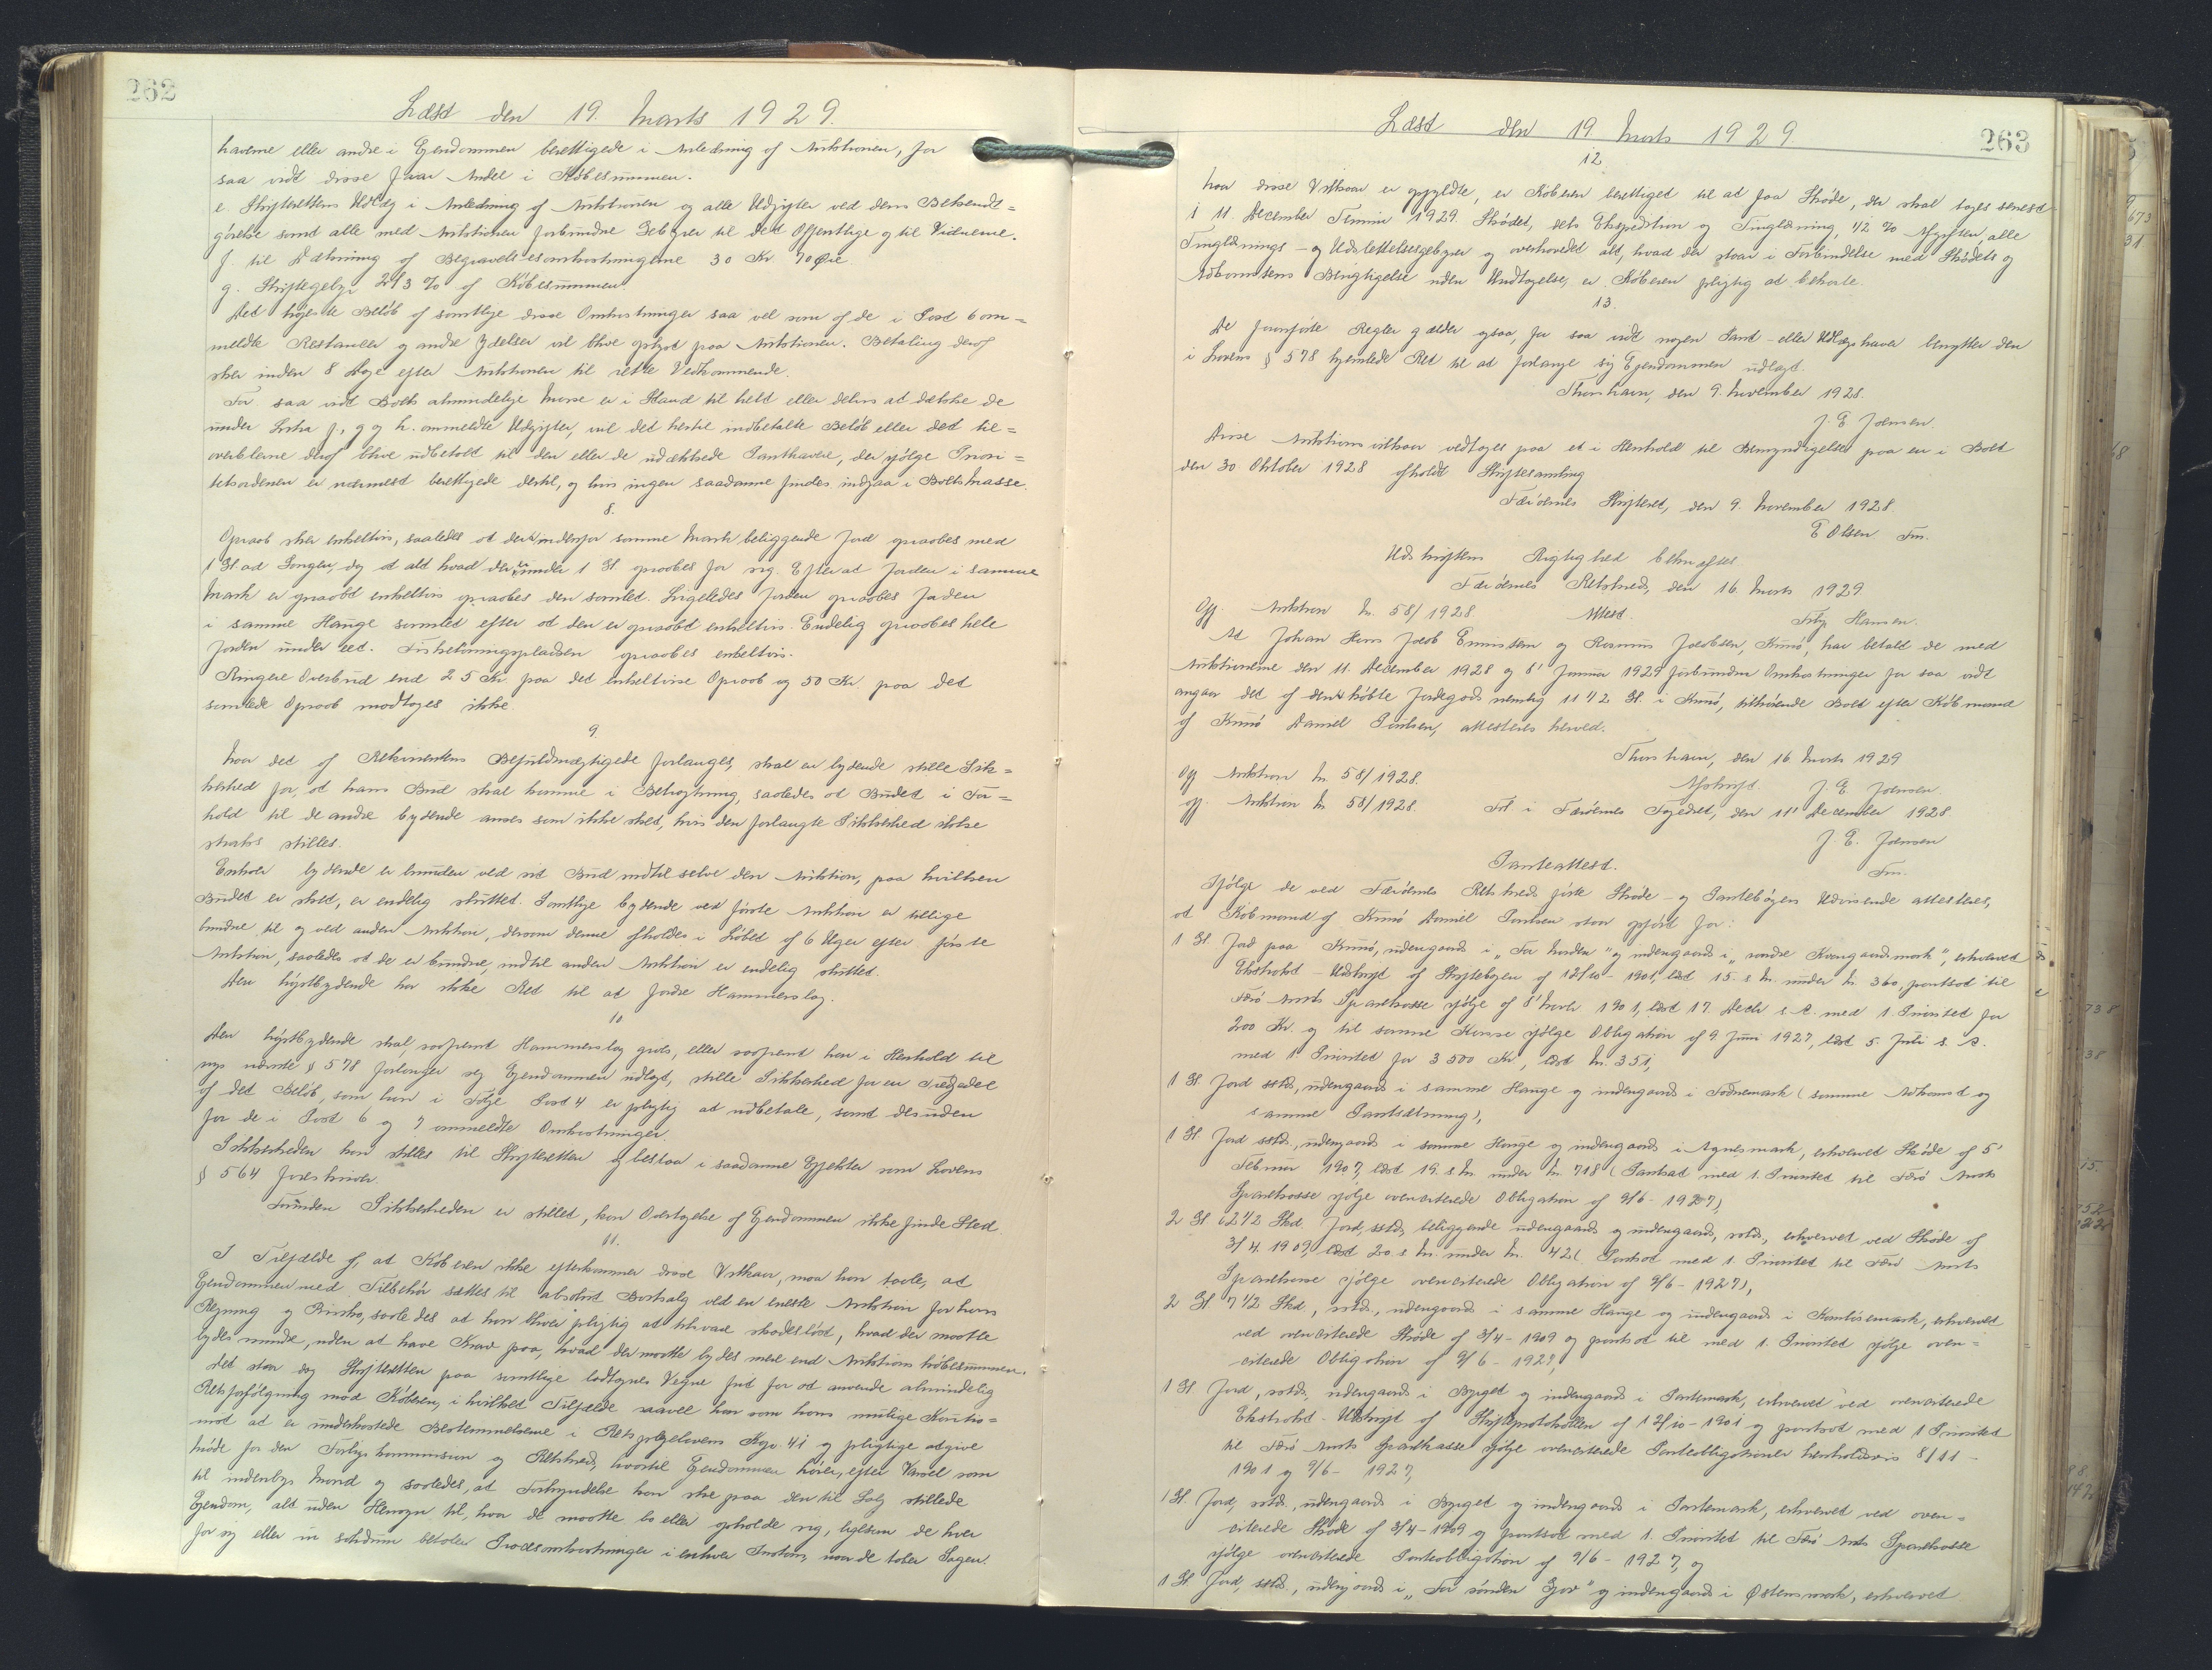 262
Læst den 19. Marts 1929.
haverne eller andre i Ejendommen berettigede i Anledning af Auktionen, for
saa vidt disse faar Andel i Købesummen.
e. Skifterettens Udlæg i Anledning af Auktionen og alle Udgifter ved dens Bekendt=
gørelse samt alle med Auktionen forbundne Gebyrer til det Offentlige og til Vidnerne.
f. til Dækning af Begravelsesomkostningerne 30 Kr. 70 Øre
g. Skiftegebyr 2 1/3 % af Købesummen.
Det højeste Beløb af samtlige disse Omkostninger saa vel som af de i Post 6 om=
meldte Restancer og andre Ydelser vil blive oplyst paa Auktionen. Betaling deraf
sker inden 8 Dage efter Auktionen til rette Vedkommende.
For saa vidt Boets almindelige Masse er i Stand til helt eller delvis at dække de
under Litra f, g og h. ommeldte Udgifter, vil det hertil indbetalte Beløb eller det til=
overblevne deraf blive udbetalt til den eller de udækkede Panthavere, der ifølge Priori=
tetsordenen er nærmest berettigede dertil, og hvis ingen saadanne findes indgaa i Boets Masse.
8.
Opraab sker enkeltvis, saaledes at den indenfor samme Mark beliggende Jord opraabes med
1 Gl. ad Gangen, dog at alt hvad der er under 1 Gl. opraabes for sig. Efter at Jorden i samme
Mark er opraabt enkeltvis opraabes den samlet. Ligeledes Jorden opraabes Jorden
i samme Hauge samlet efter at den er opraabt enkeltvis. Endelig opraabes hele
Jorden under eet. Fisketørringspladsen opraabes enkeltvis.
Ringere Overbud end 25 Kr. paa det enkeltvise Opraab og 50 Kr. paa det
samlede Opraab modtages ikke.
9.
Naar det af Rekvirentens Befuldmægtigede forlanges, skal en bydende stille Sik=
kerhed for, at hans Bud skal komme i Betragtning, saaledes at Budet i For=
hold til de andre bydende anses som ikke sket, hvis den forlangte Sikkerhed ikke
straks stilles.
Enhver bydende er bunden ved sit Bud indtil selve den Auktion, paa hvilken
Budet er sket, er endelig sluttet. Samtlige bydende ved første Auktion er tillige
bundne til og ved anden Auktion, dersom denne afholdes i Løbet af 6 Uger efter første
Auktion, saaledes at de er bundne, indtil anden Auktion er endelig sluttet.
Den højstbydende har ikke Ret til at fordre Hammerslag.
10.
Den højstbydende skal, saafremt Hammerslag gives, eller saafremt han i Henhold til
nys nævnte § 578 forlanger sig Ejendommen udlagt, stille Sikkerhed for en Tredjedel
af det Beløb, som han i Følge Post 4 er pligtig at udbetale, samt desuden
for de i Post 6 og 7 ommeldte Omkostninger.
Sikkerheden kan stilles til Skifteretten og bestaa i saadanne Effekter som Lovens
§ 564 foreskriver.
Forinden Sikkerheden er stillet, kan Overtagelse af Ejendommen ikke finde Sted.
11.
I Tilfælde af, at Køberen ikke efterkommer disse Vilkaar, maa han taale, at
Ejendommen med Tilbehør sættes til absolut Bortsalg ved en eneste Auktion for hans
Regning og Risiko, saaledes at han bliver pligtig at tilsvare skadesløst, hvad der maatte
bydes mindre, uden at have Krav paa, hvad der maatte bydes mere end Auktionskøbesummen.
Det staar dog Skifteretten paa samtlige lodtagnes Vegne frit for at anvende almindelig
Retsforfølgning mod Køberen, i hvilket Tilfælde saavel han som hans mulige Kautio=
nist ad er underkastede Bestemmelserne i Retsplejelovens Kap. 41 og pligtige at give
Møde for den Forligskommission og Retskreds, hvortil Ejendommen hører, efter Varsel som
til indenbys Mænd og saaledes, at Forkyndelse kan ske paa den til Salg stillede
Ejendom, alt uden Hensyn til, hvor de maatte bo eller opholde sig, ligesom de hver
for sig eller in solidum betaler Procesomkostninger i enhver Instans, naar de taber Sagen.
263
Læst den 19. Marts 1929.
12.
Naar disse Vilkaar er opfyldte, er Køberen berettiget til at faa Skøde, der skal tages senest
i 11. December Termin 1929. Skødet, dets Ekspedition og Tinglæsning, 1/2 % Afgiften, alle
Tinglæsnings- og Udslettelsesgebyrer og overhovedet alt, hvad der staar i Forbindelse med Skødets og
Adkomstens Berigtigelse uden Undtagelse, er Køberen pligtig at bekoste.
13.
De foranførte Regler gælder ogsaa, for saa vidt nogen Pant- eller Udlægshaver benytter den
i Lovens § 578 hjemlede Ret til at forlange sig Ejendommen udlagt.
Thorshavn, den 9. November 1928.
J. E. Joensen.
Disse Auktionsvilkaar vedtages paa et i Henhold til Bemyndigelse paa en i Boet
den 30 Oktober 1928 afholdt Skiftesamling
Færöernes Skifteret, den 9. November 1928.
E Olsen Fm.
Udskriftens Rigtighed bekræftes.
Færöernes Retskreds, den 16. Marts 1929
Hansen.
Ofj. Auktion Nr. 58/1928. Attest.
At Johan Hans Jacob Ennistein og Rasmus Jacobsen, Kunø, har betalt de med
Auktionerne den 11. December 1928 og 8' Januar 1929 forbundne Omkostninger for saa vidt
angaar det af dem købte Jordegods nemlig 11 1/2 Gl. i Kunø, tilhørende Boet efter Købmand
af Kunø Daniel Poulsen, attesteres herved.
Thorshavn, den 16 Marts 1929
Afskrift J. E. Joensen.
Ofj Auktion Nr. 58/1928.
ofj. Auktion Nr. 58/1928. Frl. i Færöernes Fogedret, den 11' December 1928
J. E. Joensen
Fm.
Panteattest.
Ifølge de ved Færöernes Retskreds førte Skøde- og Pantebøgers Udvisende attesteres,
at Købmand af Kunø Daniel Poulsen staar opført for:
1 Gl. Jord paa Kunø, udengaards i „For Norden" og indengaards i „søndre Kvangaardsmark", erhvervet
Ekstrakt-Udskrift af Skiftebogen af 12/10-1901, læst 15. s. M. under Nr. 360, pantsat til
Færø Amts Sparekasse ifølge af 8' Novbr 1901, læst 17. Decbr s. A. med 1. Prioritet for
200 Kr. og til samme Kasse ifølge Obligation af 9. Juni 1927, læst 5. Juli s. A.
med 1. Prioritet for 3500 Kr., læst Nr. 351,
1 Gl. Jord sstds., udengaards i samme Hauge og indengaards i Fodnemark (samme Adkomst og
samme Pantsætning),
1 Gl. Jord sstds., udengaards i samme Hauge og indengaards i Agnesmark, erhvervet Skøde af 5'
Februar 1907, læst 19. s. M. under Nr. 718 (Pantsat med 1. Prioritet til Færø Amts
Sparekasse ifølge ovenciterede Obligation af 9/6-1927),
2 Gl. 2 1/2 Skd. Jord, sstds., beliggende udengaards og indengaards, sstds., erhvervet ved Skøde af
3/4 1909, læst 20 s. M. under Nr. 42 (Pantsat med 1. Prioritet til Færø Amts
Sparekasse ifølge ovenciterede Obligation af 9/6-1927),
2 Gl. 7 1/2 Skd, sstds., udengaards i samme Hauge og indengaards i Kantisemark, erhvervet
ved ovenciterede Skøde af 3/4-1909 og pantsat til med 1. Prioritet ifølge oven=
citerede Obligation af 9/6-1927,
1 Gl. Jord, sstds., udengaards i Byrget og indengaards i Partemark, erhvervet ved ovenciterede
Ekstrakt-Udskrift af Skifteprotokollen af 12/10-1901 og pantsat med 1 Prioritet
til Færø Amts Sparekasse ifølge ovenciterede Panteobligationer henholdsvis 8/11-
1901 og 9/6-1927,
1 Gl. Jord, sstds., udengaards i Byrget og indengaards i Partemark, erhvervet ved oven=
citerede Skøde af 3/4-1909 og pantsat med 1. Prioritet til Færø Amts Sparekasse
ifølge ovenciterede Panteobligation af 9/6-1927, og
1 Gl. Jord, sstds., udengaards i „For sønden Gjov" og indengaards i Østensmark, erhvervet